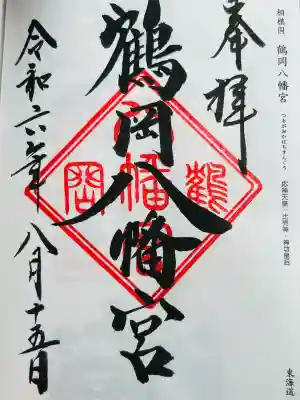 相模国 鶴岡八幡宮 つるがおかはちまんぐう 応神天皇・比売神・神功皇后
東海道
奉拝
鶴岡八幡宮
令和六年 八月十五日
鶴岡八幡宮